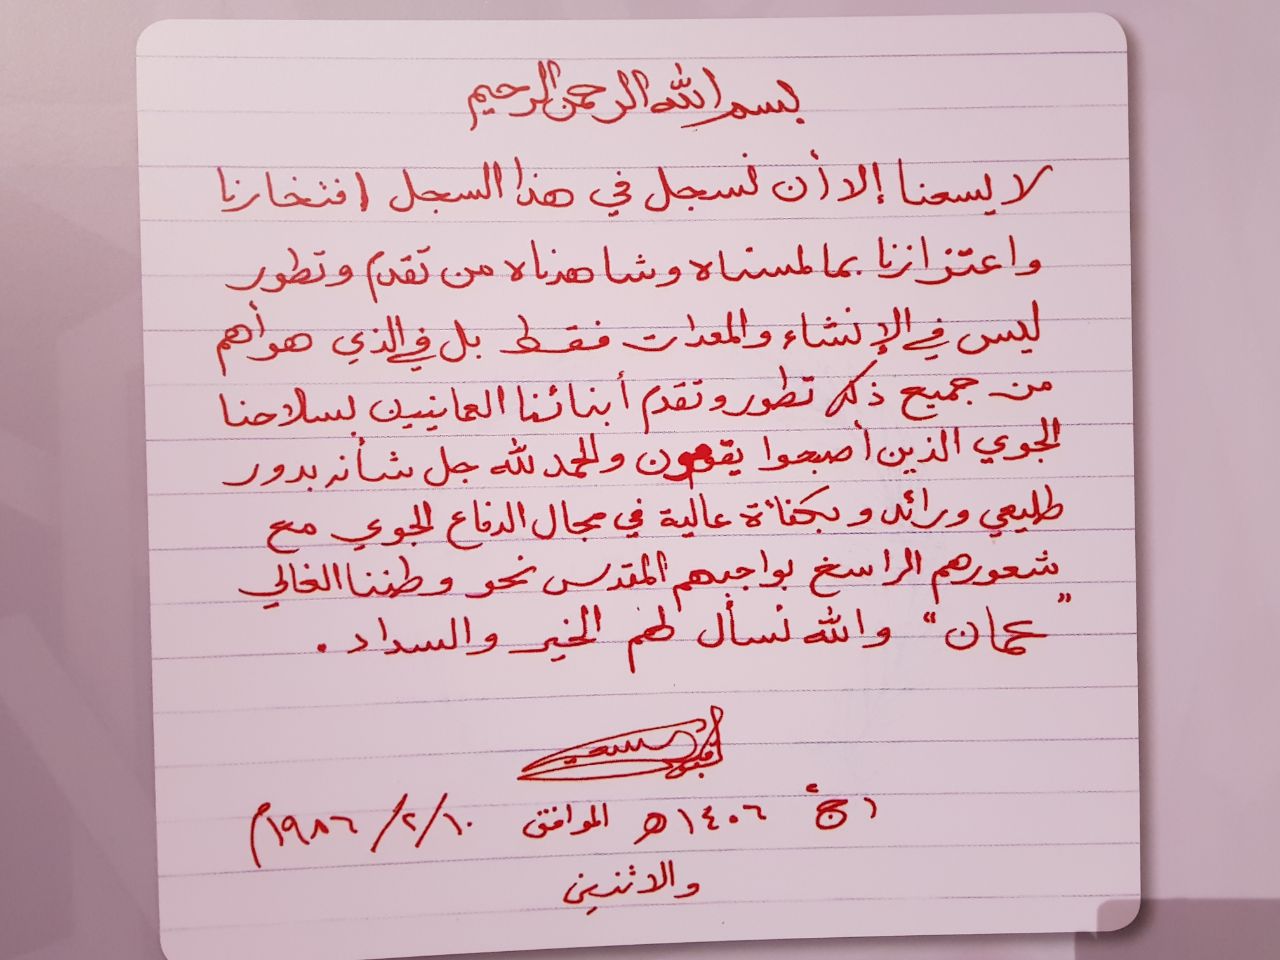 بسم الله الرحمن الرحيم
لا يسعنا إلا أن نسجل في هذا السجل افتخارنا
واعتزازنا بما لمسناه وشاهدناه من تقدم وتطور
ليس في الإنشاء والمعدات فقط بل في الذي هو أهم
من جميع ذلك تطور وتقدم أبنائنا العمانيين بسلاحنا
الجوي الذين أصبحوا يقومون والحمد لله جل شأنه بدور
طليعي ورائد وبكفاءة عالية في مجال الدفاع الجوي مع
شعورهم الراسخ بواجبهم المقدس نحو وطننا الغالي
"عمان" والله نسأل لهم الخير والسداد .
١ ج٢ ١٤٠٦ هـ الموافق ١٠/٢/١٩٨٦م
والاثنين